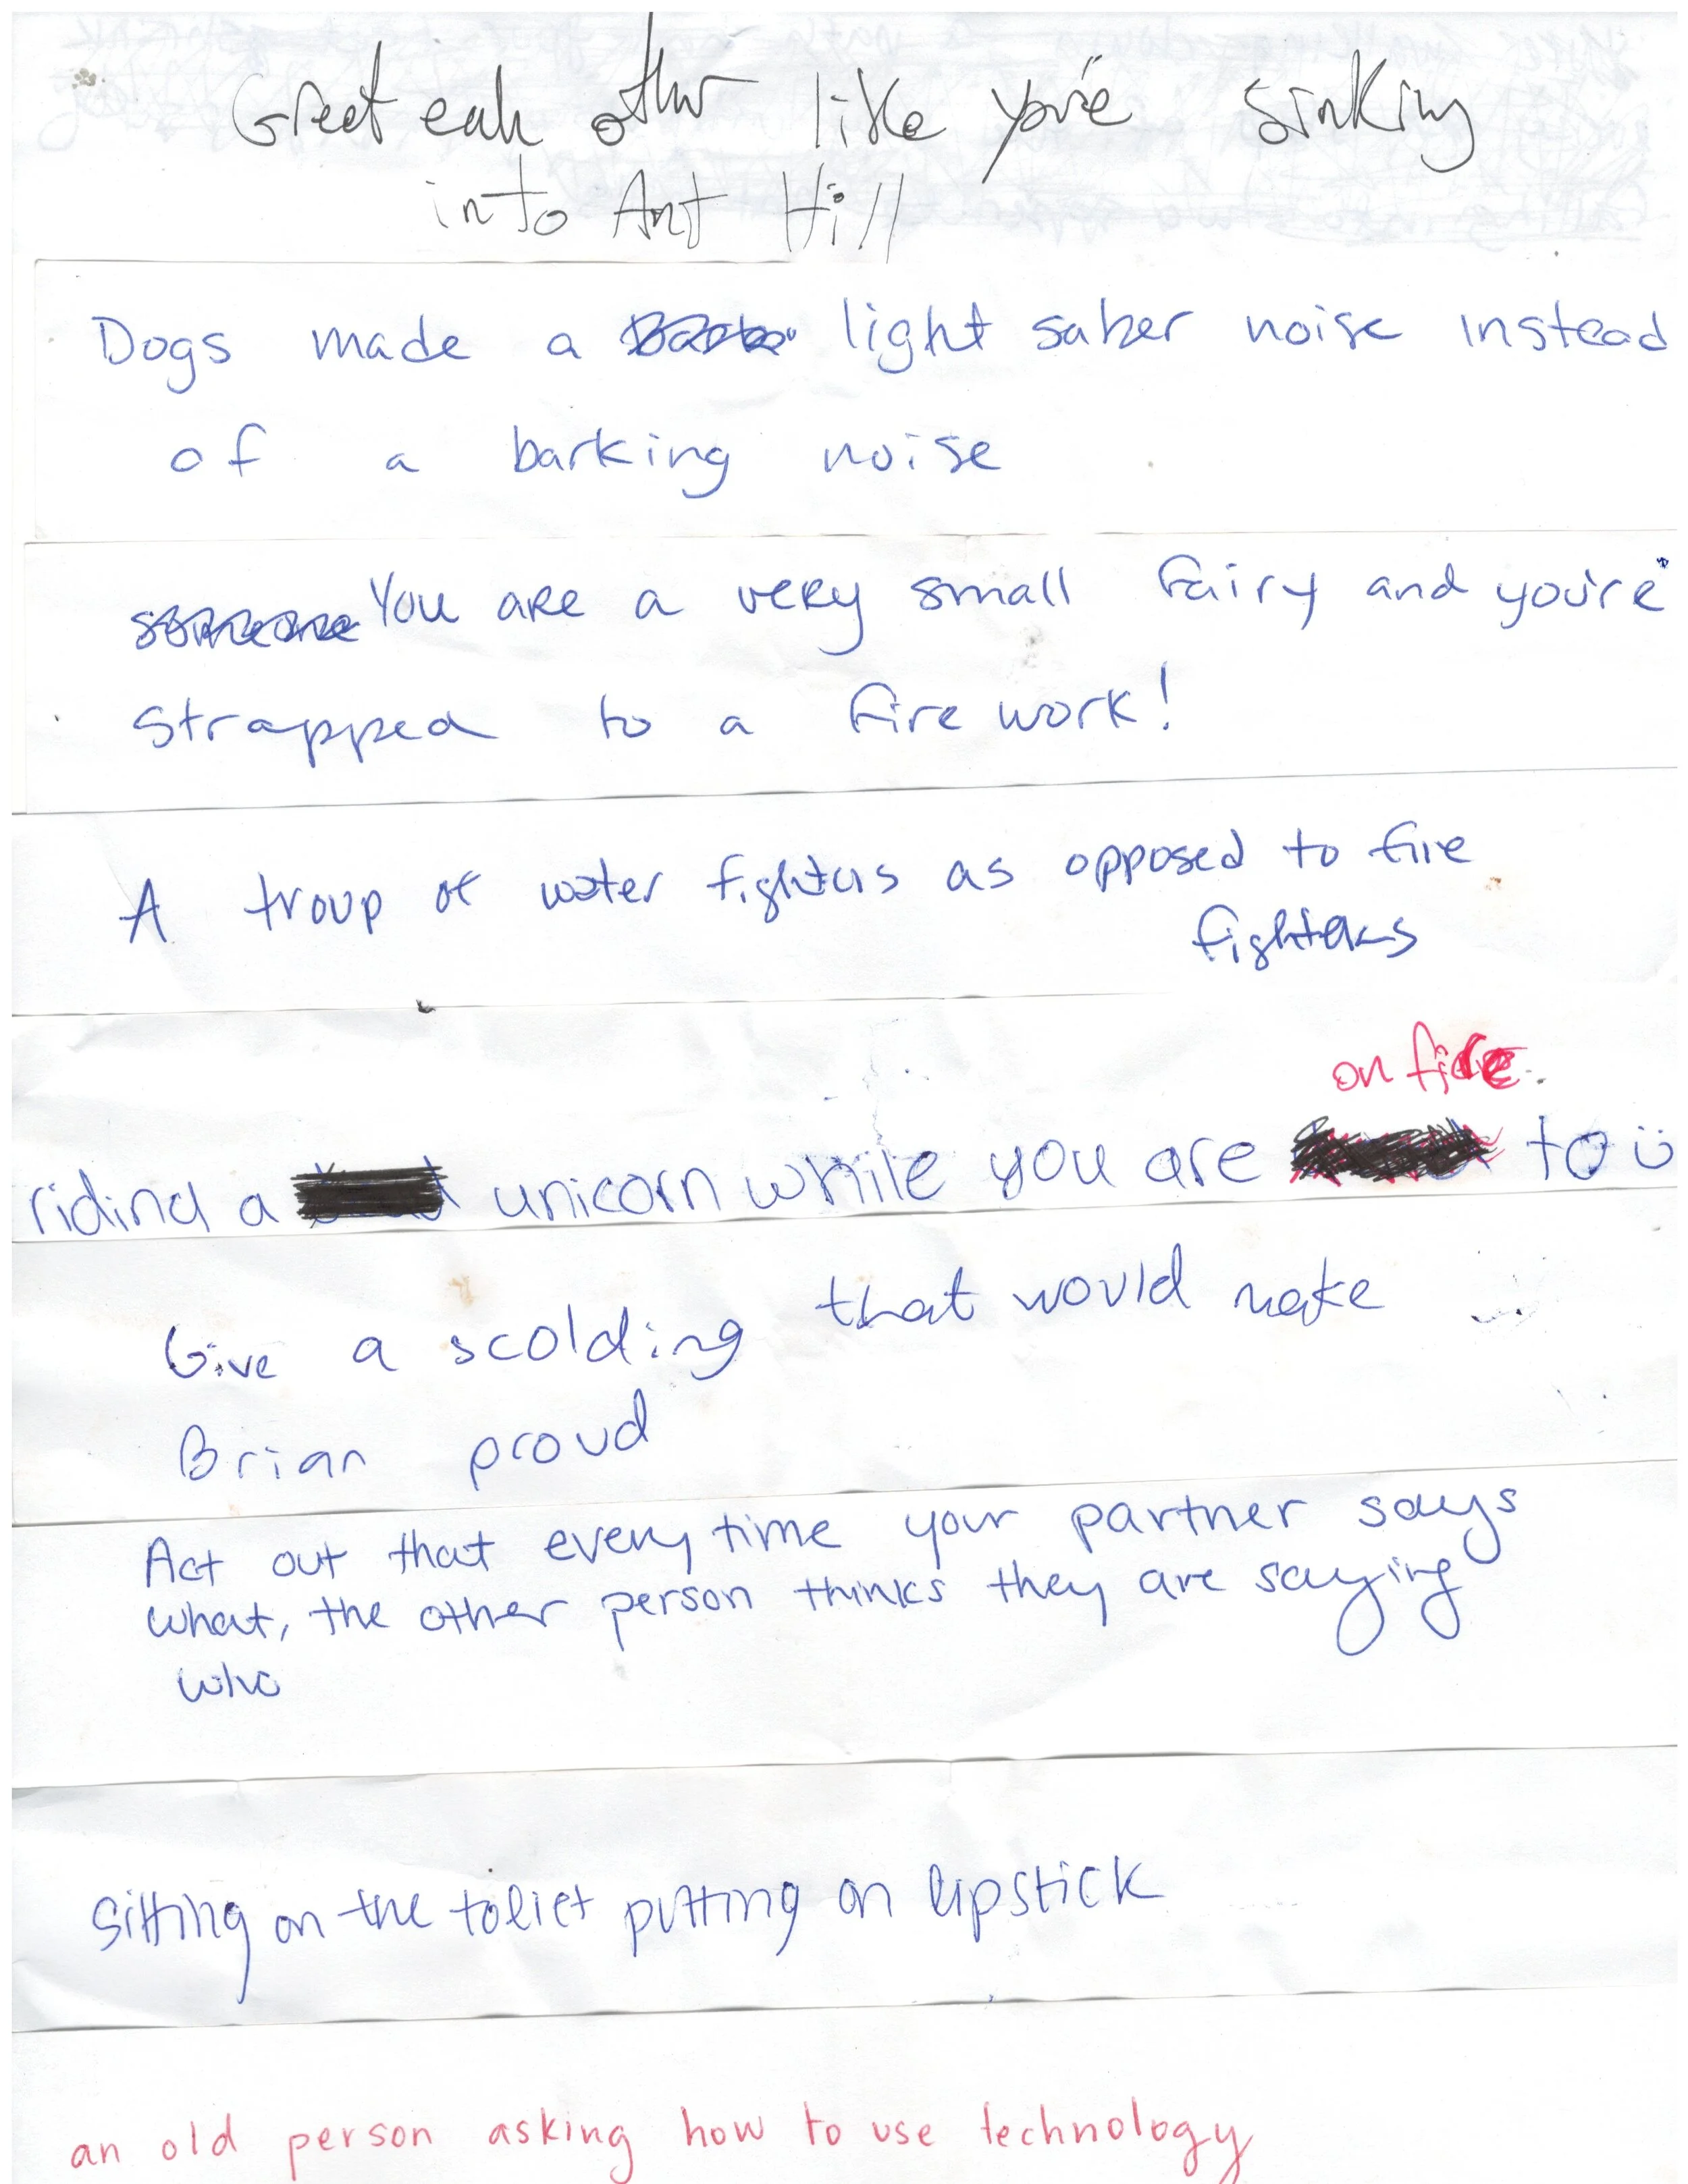 Greet eah other like you're sinking
into Ant Hill
Dogs made a light saber noise instead
of a barking noise
You are a very small fairy and you're
strapped to a fire work!
A troup of water fighters as opposed to fire
fighters
on fire
riding a unicorn while you are to
Give a scolding that would make
Brian proud
Act out that every time your partner says
what, the other person thinks they are saying
who
sitting on the toliet putting on lipstick
an old person asking how to use technology